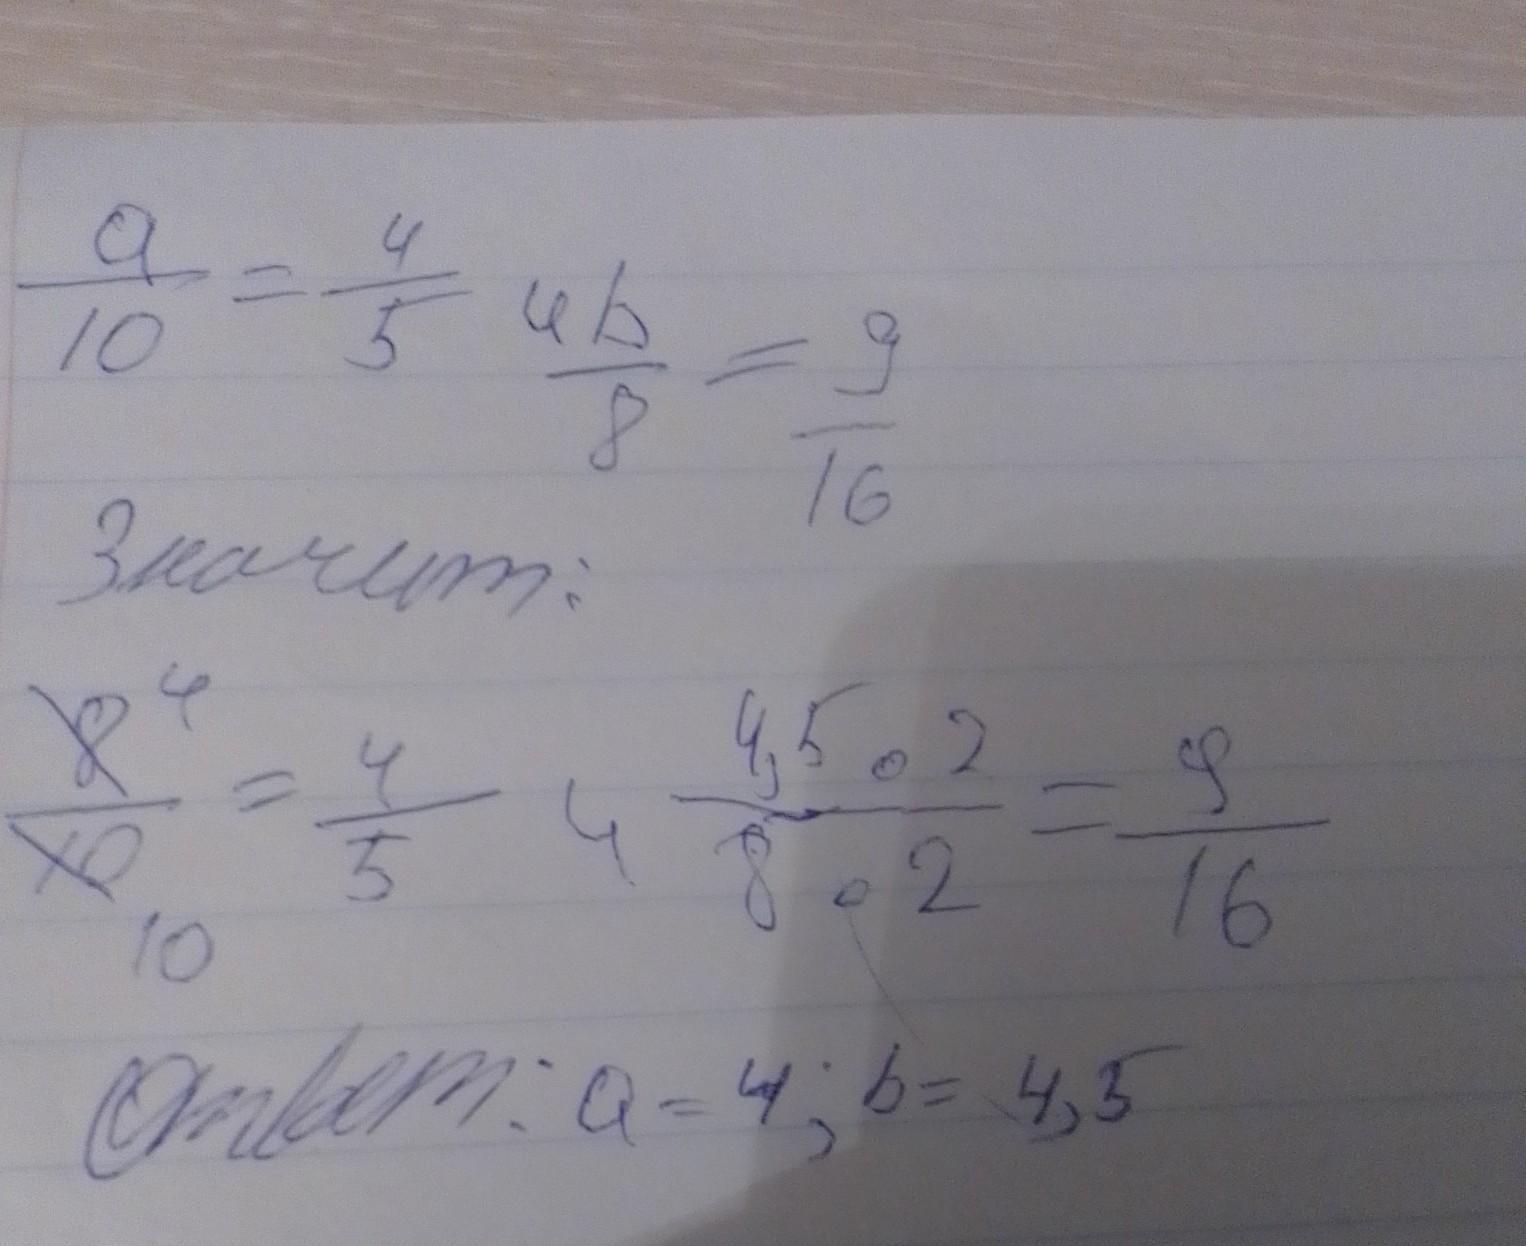 a/10 = 4/5 4 b/8 = 9/16
Значит:
8 4/10 10 = 4/5 4 4,5 · 2/8 · 2 = 9/16
Ответ: a = 4; b = 4,5